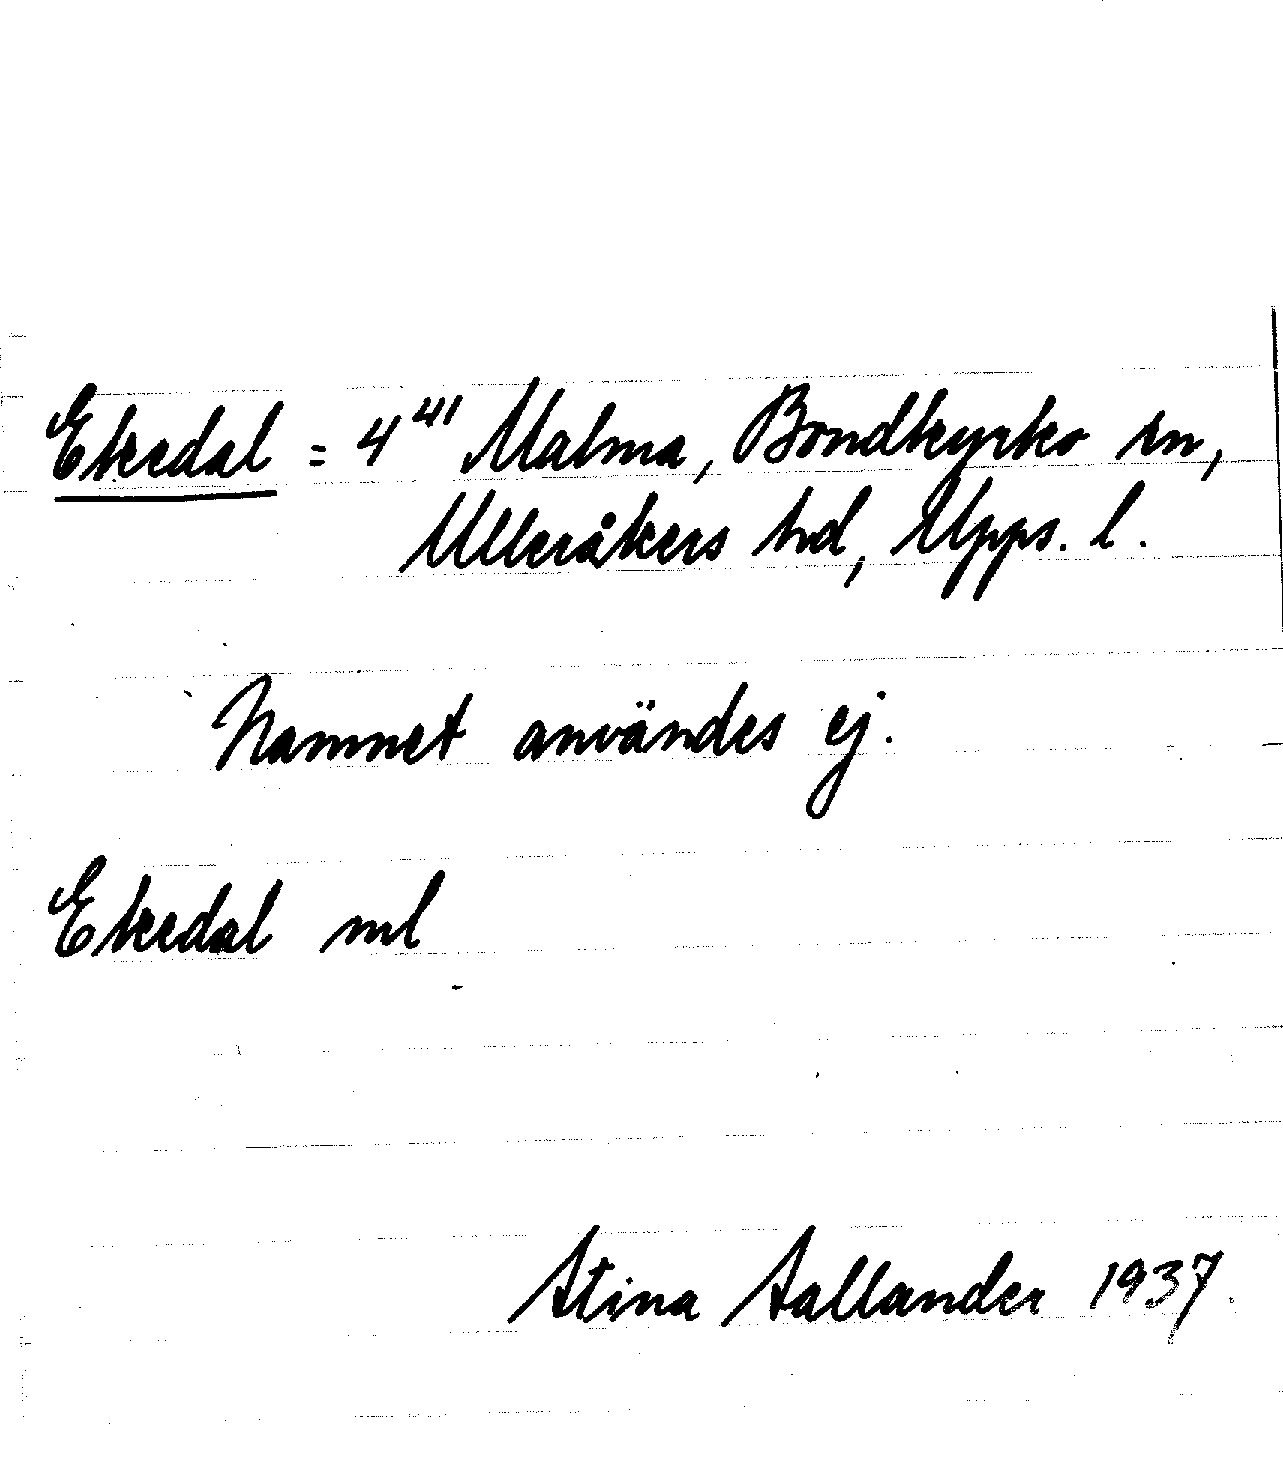 Ekedal = 4⁴¹ Malma, Bondkyrko sn,
Ulleråkers hd, Upps. l.
Namnet användes ej.
Ekedal ml
Stina Sallander 1937.